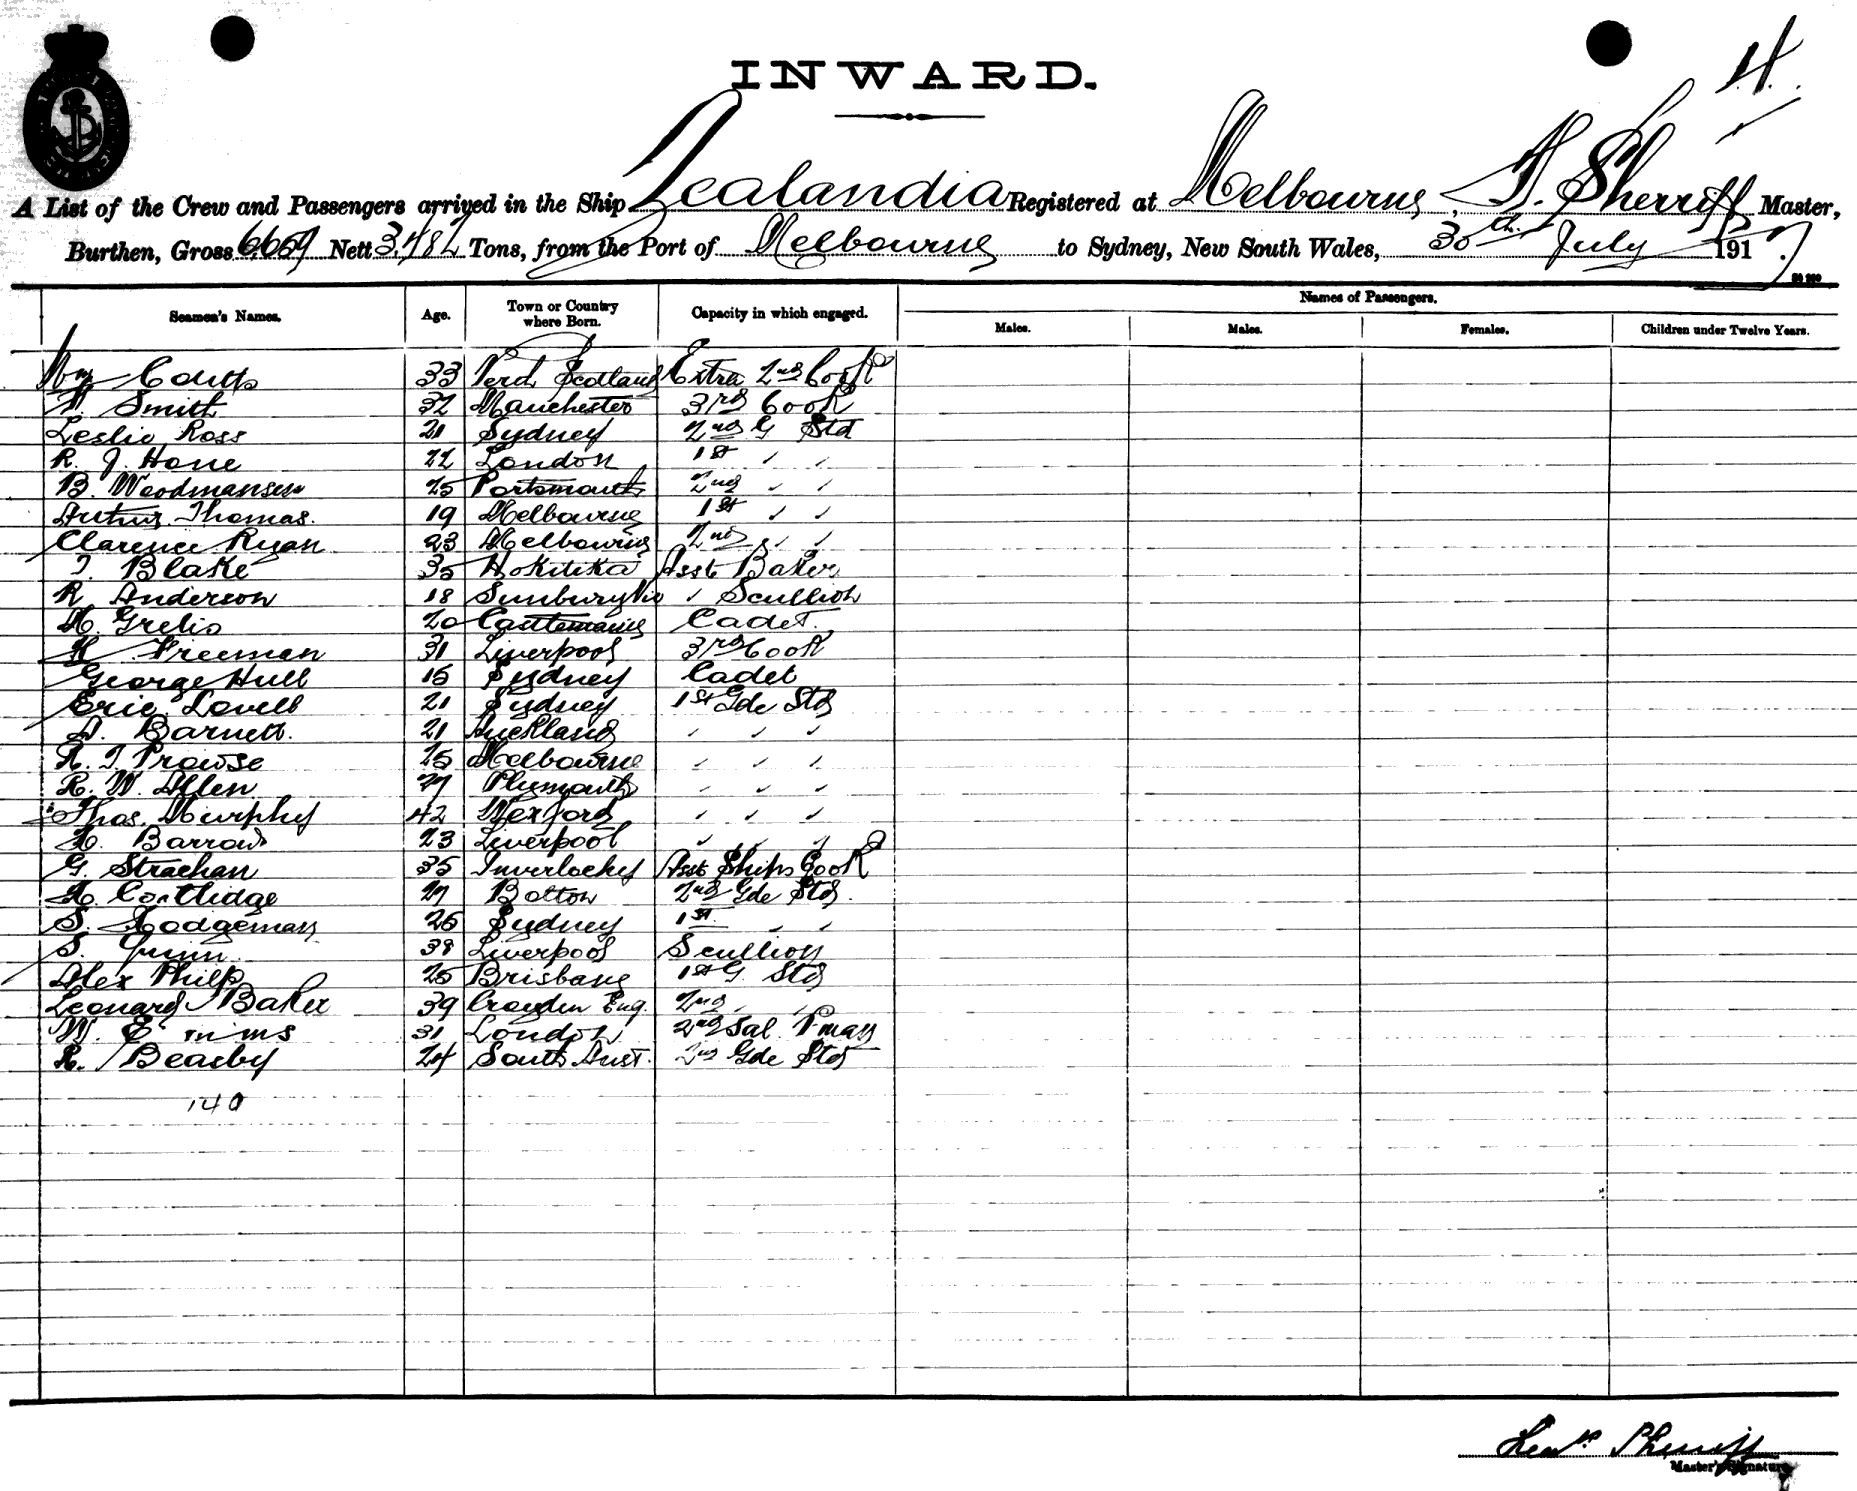 H.
INWARD.
A List of the Crew and Passengers arrived in the Ship Zealandia Registered at Melbourne, Sherriff Master,
Burthen, Gross 6.659 Nett 3.482 Tons, from the Port of Melbourne to Sydney, New South Wales, 30th July 1917.
Seamen's Names. Age. Town or Country where Born. Capacity in which engaged. Names of Passengers.
Males. Males. Females. Children under Twelve Years.
Wm Coutts 33 Scotland Extra 2nd Cook
Smith 32 Manchester 3rd Cook
Leslie Ross 21 Sydney 2nd G Std
R. J. Hone 22 London 1st ✓ ✓
B. Woodmansen 25 Portsmouth 2nd ✓ ✓
Arthur Thomas. 19 Melbourne 1st ✓ ✓
Clarence Ryan 23 Melbourne 2nd ✓ ✓
T. Blake 35 Hokitika Asst Baker
R Anderson 18 Sunbury Vic ✓ Scullion
H. Grelis 20 Castlemaine Cadet.
H Freeman 31 Liverpool 3rd Cook
George Hull 15 Sydney Cadet
Eric Lovell 21 Sydney 1st Gde Std
A. Barnett. 21 Auckland ✓ ✓ ✓
R. J. Prowse 25 Melbourne ✓ ✓ ✓
R. W. Allen 27 Plymouth ✓ ✓ ✓
Thos. Murphy 42 Wexford ✓ ✓ ✓
H. Barrow 23 Liverpool ✓ ✓ ✓
G. Strachan 35 Inverlochy Asst Ships Cook
H. Cartlidge 27 Bolton 2nd Gde Std.
S. Hodgeman 26 Sydney 1st ✓ ✓
S. Quinn 38 Liverpool Scullion
Alex Philp 25 Brisbane 1st G. Std
Leonard Baker 39 Croydon Eng. 2nd
W. E 31 London 2nd Sal. Pman
R. Beasby 24 South Aust. 2nd Gde Std
140
Sherriff
Master's Signature